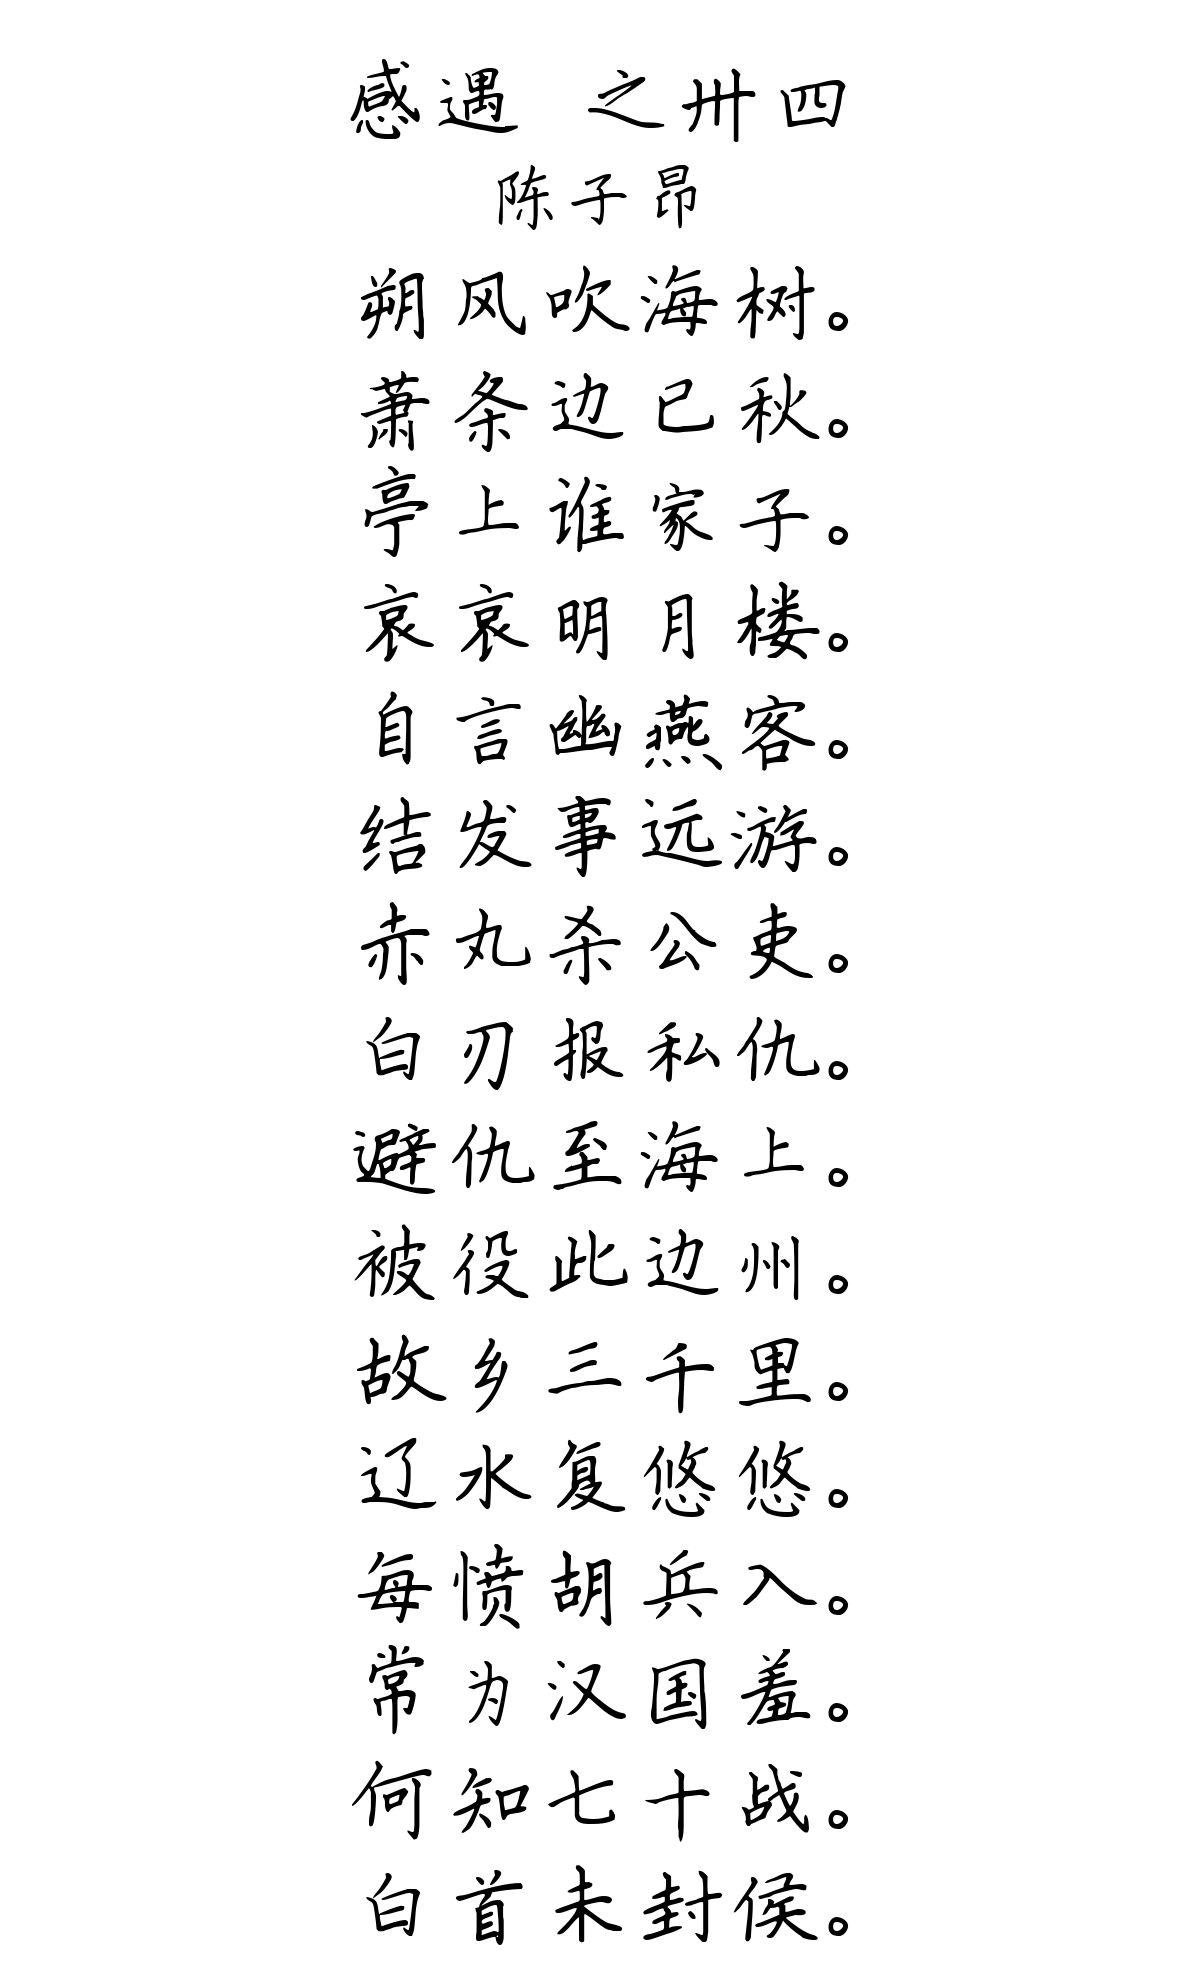 感遇 之卅四
陈子昂
朔风吹海树。
萧条边已秋。
亭上谁家子。
哀哀明月楼。
自言幽燕客。
结发事远游。
赤丸杀公吏。
白刃报私仇。
避仇至海上。
被役此边州。
故乡三千里。
辽水复悠悠。
每愤胡兵入。
常为汉国羞。
何知七十战。
白首未封侯。